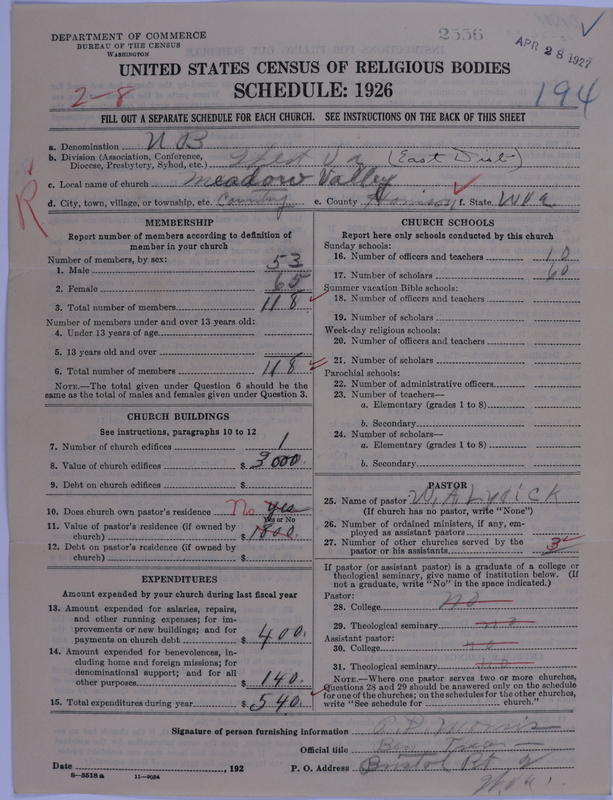 DEPARTMENT OF COMMERCE
BUREAU OF THE CENSUS
WASHINGTON
2556
APR 28 1927
UNITED STATES CENSUS OF RELIGIOUS BODIES
SCHEDULE: 1926
2-8
194
FILL OUT A SEPARATE SCHEDULE FOR EACH CHURCH. SEE INSTRUCTIONS ON THE BACK OF THIS SHEET
a. Denomination U B
b. Division (Association, Conference, Diocese, Presbytery, Synod, etc.) West Va (East Dist)
c. Local name of church Meadow Valley
d. City, town, village, or township, etc. Country e. County Harrison f. State. W Va
R
MEMBERSHIP
Report number of members according to definition of
member in your church
Number of members, by sex:
1. Male 53
2. Female 65
3. Total number of members 118
Number of members under and over 13 years old:
4. Under 13 years of age
5. 13 years old and over
6. Total number of members 118
NOTE.—The total given under Question 6 should be the
same as the total of males and females given under Question 3.
CHURCH BUILDINGS
See instructions, paragraphs 10 to 12
7. Number of church edifices 1
8. Value of church edifices $ 3000.
9. Debt on church edifices $
10. Does church own pastor's residence No yes
Yes or No
11. Value of pastor's residence (if owned by
church) $ 1800.
12. Debt on pastor's residence (if owned by
church) $
EXPENDITURES
Amount expended by your church during last fiscal year
13. Amount expended for salaries, repairs,
and other running expenses; for im-
provements or new buildings; and for
payments on church debt $ 400.
14. Amount expended for benevolences, in-
cluding home and foreign missions; for
denominational support; and for all
other purposes $ 140.
15. Total expenditures during year $ 540.
CHURCH SCHOOLS
Report here only schools conducted by this church
Sunday schools:
16. Number of officers and teachers 10
17. Number of scholars 60
Summer vacation Bible schools:
18. Number of officers and teachers
19. Number of scholars
Week-day religious schools:
20. Number of officers and teachers
21. Number of scholars
Parochial schools:
22. Number of administrative officers
23. Number of teachers—
a. Elementary (grades 1 to 8)
b. Secondary
24. Number of scholars—
a. Elementary (grades 1 to 8)
b. Secondary
PASTOR
25. Name of pastor W. A. Lydick
(If church has no pastor, write "None")
26. Number of ordained ministers, if any, em-
ployed as assistant pastors
27. Number of other churches served by the
pastor or his assistants 3
If pastor (or assistant pastor) is a graduate of a college or
theological seminary, give name of institution below. (If
not a graduate, write "No" in the space indicated.)
Pastor:
28. College no
29. Theological seminary no
Assistant pastor:
30. College no
31. Theological seminary no
NOTE.—Where one pastor serves two or more churches,
Questions 28 and 29 should be answered only on the schedule
for one of the churches; on the schedules for the other churches,
write "See schedule for church."
Signature of person furnishing information
Official title Ben Treas
Date , 192 P. O. Address Bristol Rt 2
W Va.
8-5518 a 11-9024